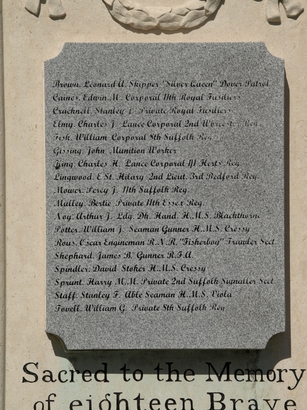 Brown, Leonard A. Skipper "Silver Queen" Dover Patrol
Caines, Edwin M. Corporal 11th Royal Fusiliers
Cracknell, Stanley L. Private Royal Fusiliers
Elmy, Charles J. Lance Corporal 2nd
Fish, William Corporal 8th Suffolk Reg.
Gissing, John Munition Worker
Jung, Charles H. Lance Corporal 1/1 Herts. Reg.
Lingwood, E. St. Hilary 2nd Lieut. 3rd Bedford Reg.
Mower, Percy J. 11th Suffolk Reg.
Mulley, Bertie Private 11th Essex Reg.
Noy, Arthur J. Ldg. Dk. Hand. H.M.S. Blackthorne
Potter, William J. Seaman Gunner H.M.S. Cressy
Rous, Oscar Engineman R.N.R. "Fisherboy" Trawler Sect
Shephard, James B. Gunner R.F.A.
Spindler, David Stoker H.M.S. Cressy
Sprunt, Harry M.M. Private 2nd Suffolk Signaller Sect
Staff, Stanley F. Able Seaman H.M.S. Viola
Tovell, William G. Private 8th Suffolk Reg
Sacred to the Memory
of eighteen Brave